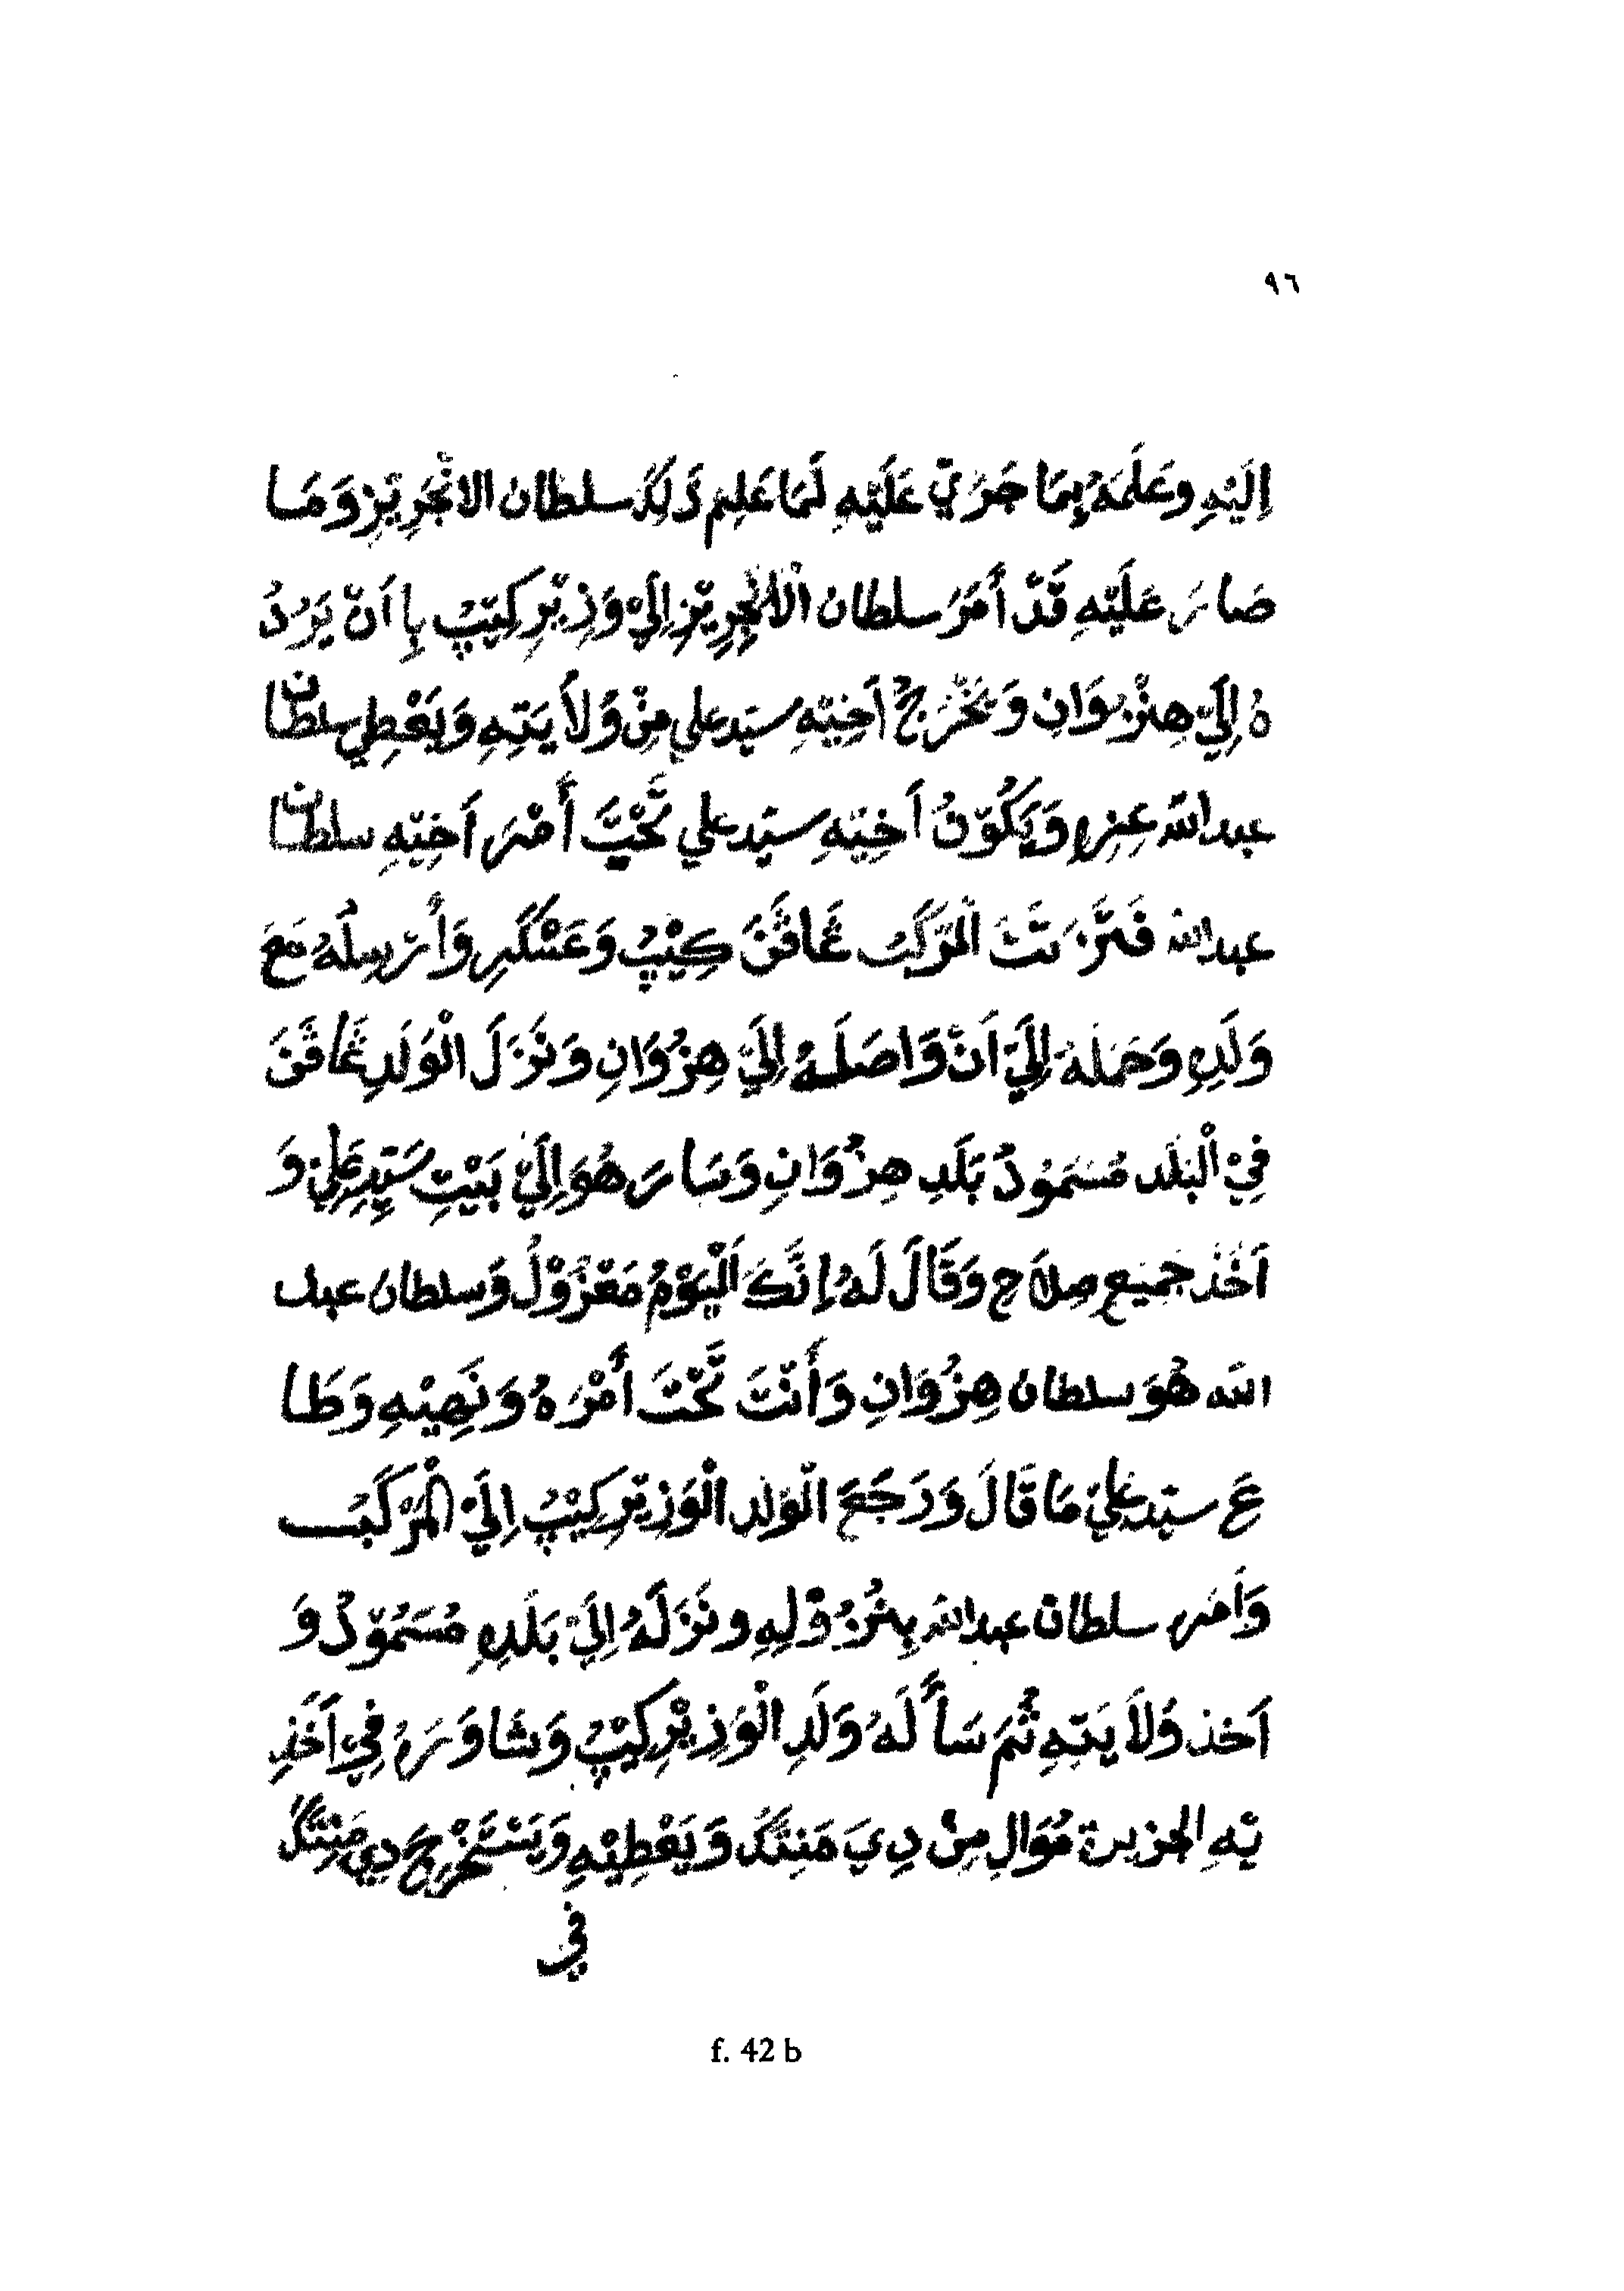 ٩٦
إِلَيْهِ وعَلَمَهُ بِمَا جَرَيّ عَلَيْهِ لَمَا عَلِم ذَلِكَ سلطان الانْجَرِيَزِ وَمَا
صَارَ عَلَيْهِ قَدْ أَمَرَ سلطان الْانْجِرِيْزِ اِلَيْ وَزِيْرِ كِيْبُ بِا اَنْ يَرُدُ
هُ اِلَيْ هِنْزُوَانِ وَيَخْرُجُ اَخِيْهِ سيَد علي مِنْ وَلَا يَتِهِ وَيَعْطِي سلطان
عبد اللّه عِزِهِ وَيَكُوْنُ اَخِيْهِ سيَد علي تَحْتَ أَمْرِ اَخِيْهِ سلطان
عبد اللّه فَتَرَتَّ الْمَرْكَبُ غَافَّنَ كِيْبُ وَعَسْكَرِ وَأَرْسِلَهُ مَعَ
وَلَدِهِ وَحَمَلَهُ اِلَيْ اَنْ وَّاصَلَهُ اِلَيْ هِنُزُوَانِ وَنَزَلَ الْوَلَدِ غَافَّنَ
فِيْ الْبَلَد مُسَمُوْدُ بَلَدِ هِنُزُوَانِ وَسَارَ هُوَ اِلَيْ بَيْتِ سَيِّدِ عَلِيْ وَ
اَخْذ جَمِيْعِ صِلَاحِ وَقَالَ لَهُ اِنَّكَ الْيَوْمُ مَعْزُوْلُ وَسلطان عبد
اللّه هُوَ سلطان هِنُزُوَانِ وَأَنْتَ تَحْتَ أَمْرَهُ وَنَهِيْهِ وَطَا
عَ سيّد عليْ مَا قَالَ وَرَجَعَ الْوَلِد الْوَزِيْرِ كِيْبُ اِلَيْ الْمَرْكَبُ
وَأَمَر سلطان عبد اللّه بِنُزُوْلِهِ ونَزَلَهُ اِلَيْ بَلَدِهِ مُسَمُوْدُ وَ
اَخذ وَلَا يَتِهِ ثُمَّ سَأَلَهُ وَلَدِ الْوَزِيْرِ كِيْبُ وَشَاوَرَهُ فِيْ اَخْذِ
يْهِ الجزيرة مُوَالِ مِنْ دِيَ مَنِتَكَ وَيَعْطِيْهِ وَيَسْتَخْرِجَ دِي مَنِتَكَ
في
f. 42 b